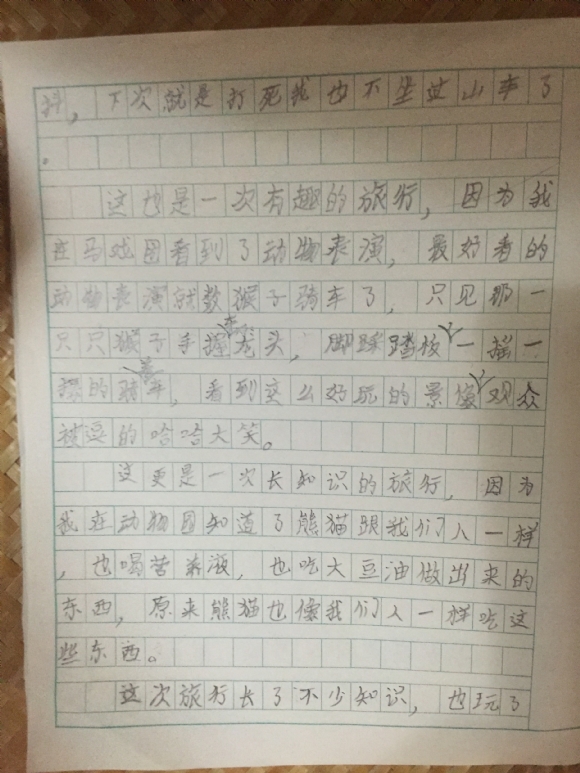 抖，下次就是打死我也不坐过山车了
。
这也是一次有趣的旅行，因为我
在马戏团看到了动物表演，最好看的
动物表演就数猴子骑车了，只见那一
只只猴子手握车龙头，脚踩踏板，一摇一
摆的骑着车，看到这么好玩的景像，观众
被逗的哈哈大笑。
这更是一次长知识的旅行，因为
我在动物园知道了熊猫跟我们人一样
，也喝营养液，也吃大豆油做出来的
东西，原来熊猫也像我们人一样吃这
些东西。
这次旅行长了不少知识，也玩了